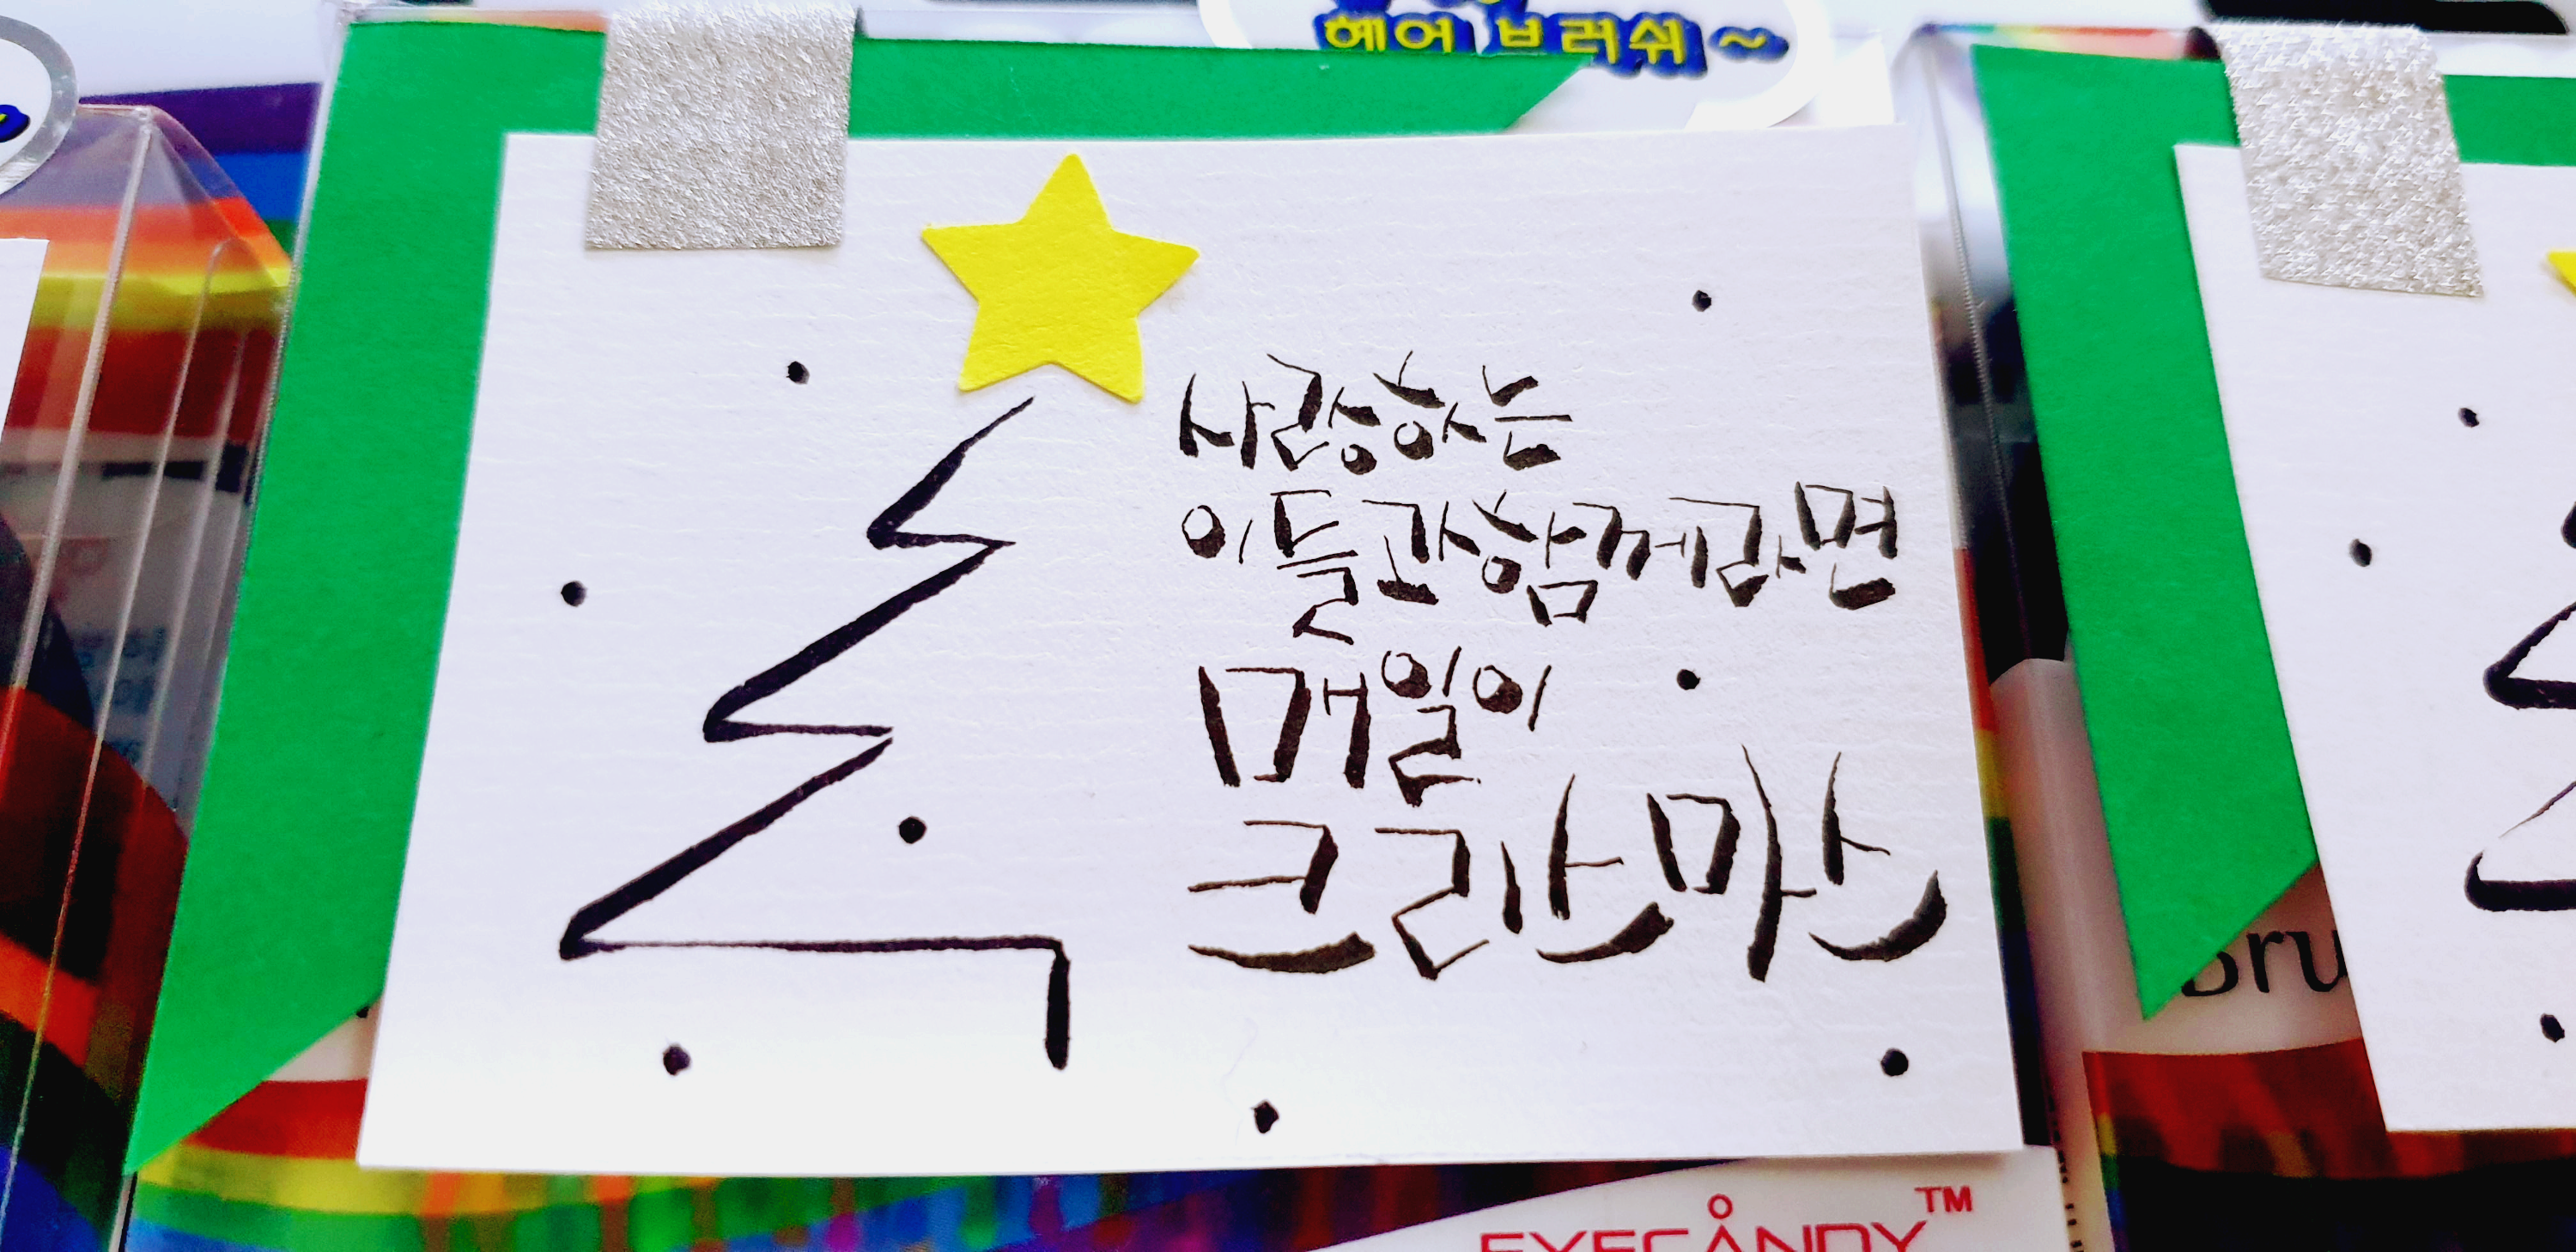 헤어 브러쉬~
사랑하는
이들과 함께라면
매일이
크리스마스
Bru
EYECANDY™